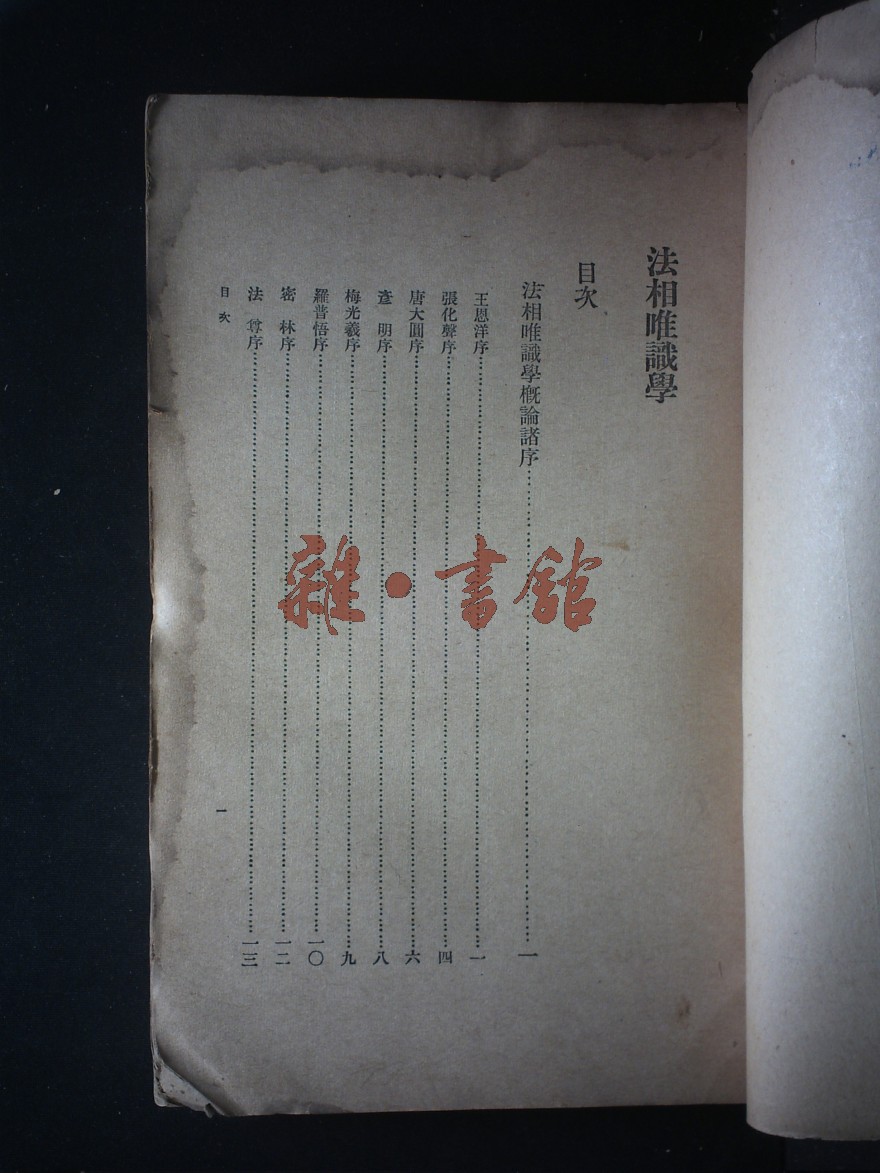 法相唯識學
目次
法相唯識學概論諸序……一
王恩洋序……一
張化聲序……四
唐大圓序……六
彥　明序……八
梅光羲序……九
羅普悟序……一〇
密　林序……一二
法　尊序……一三
目次
一
雜·書館